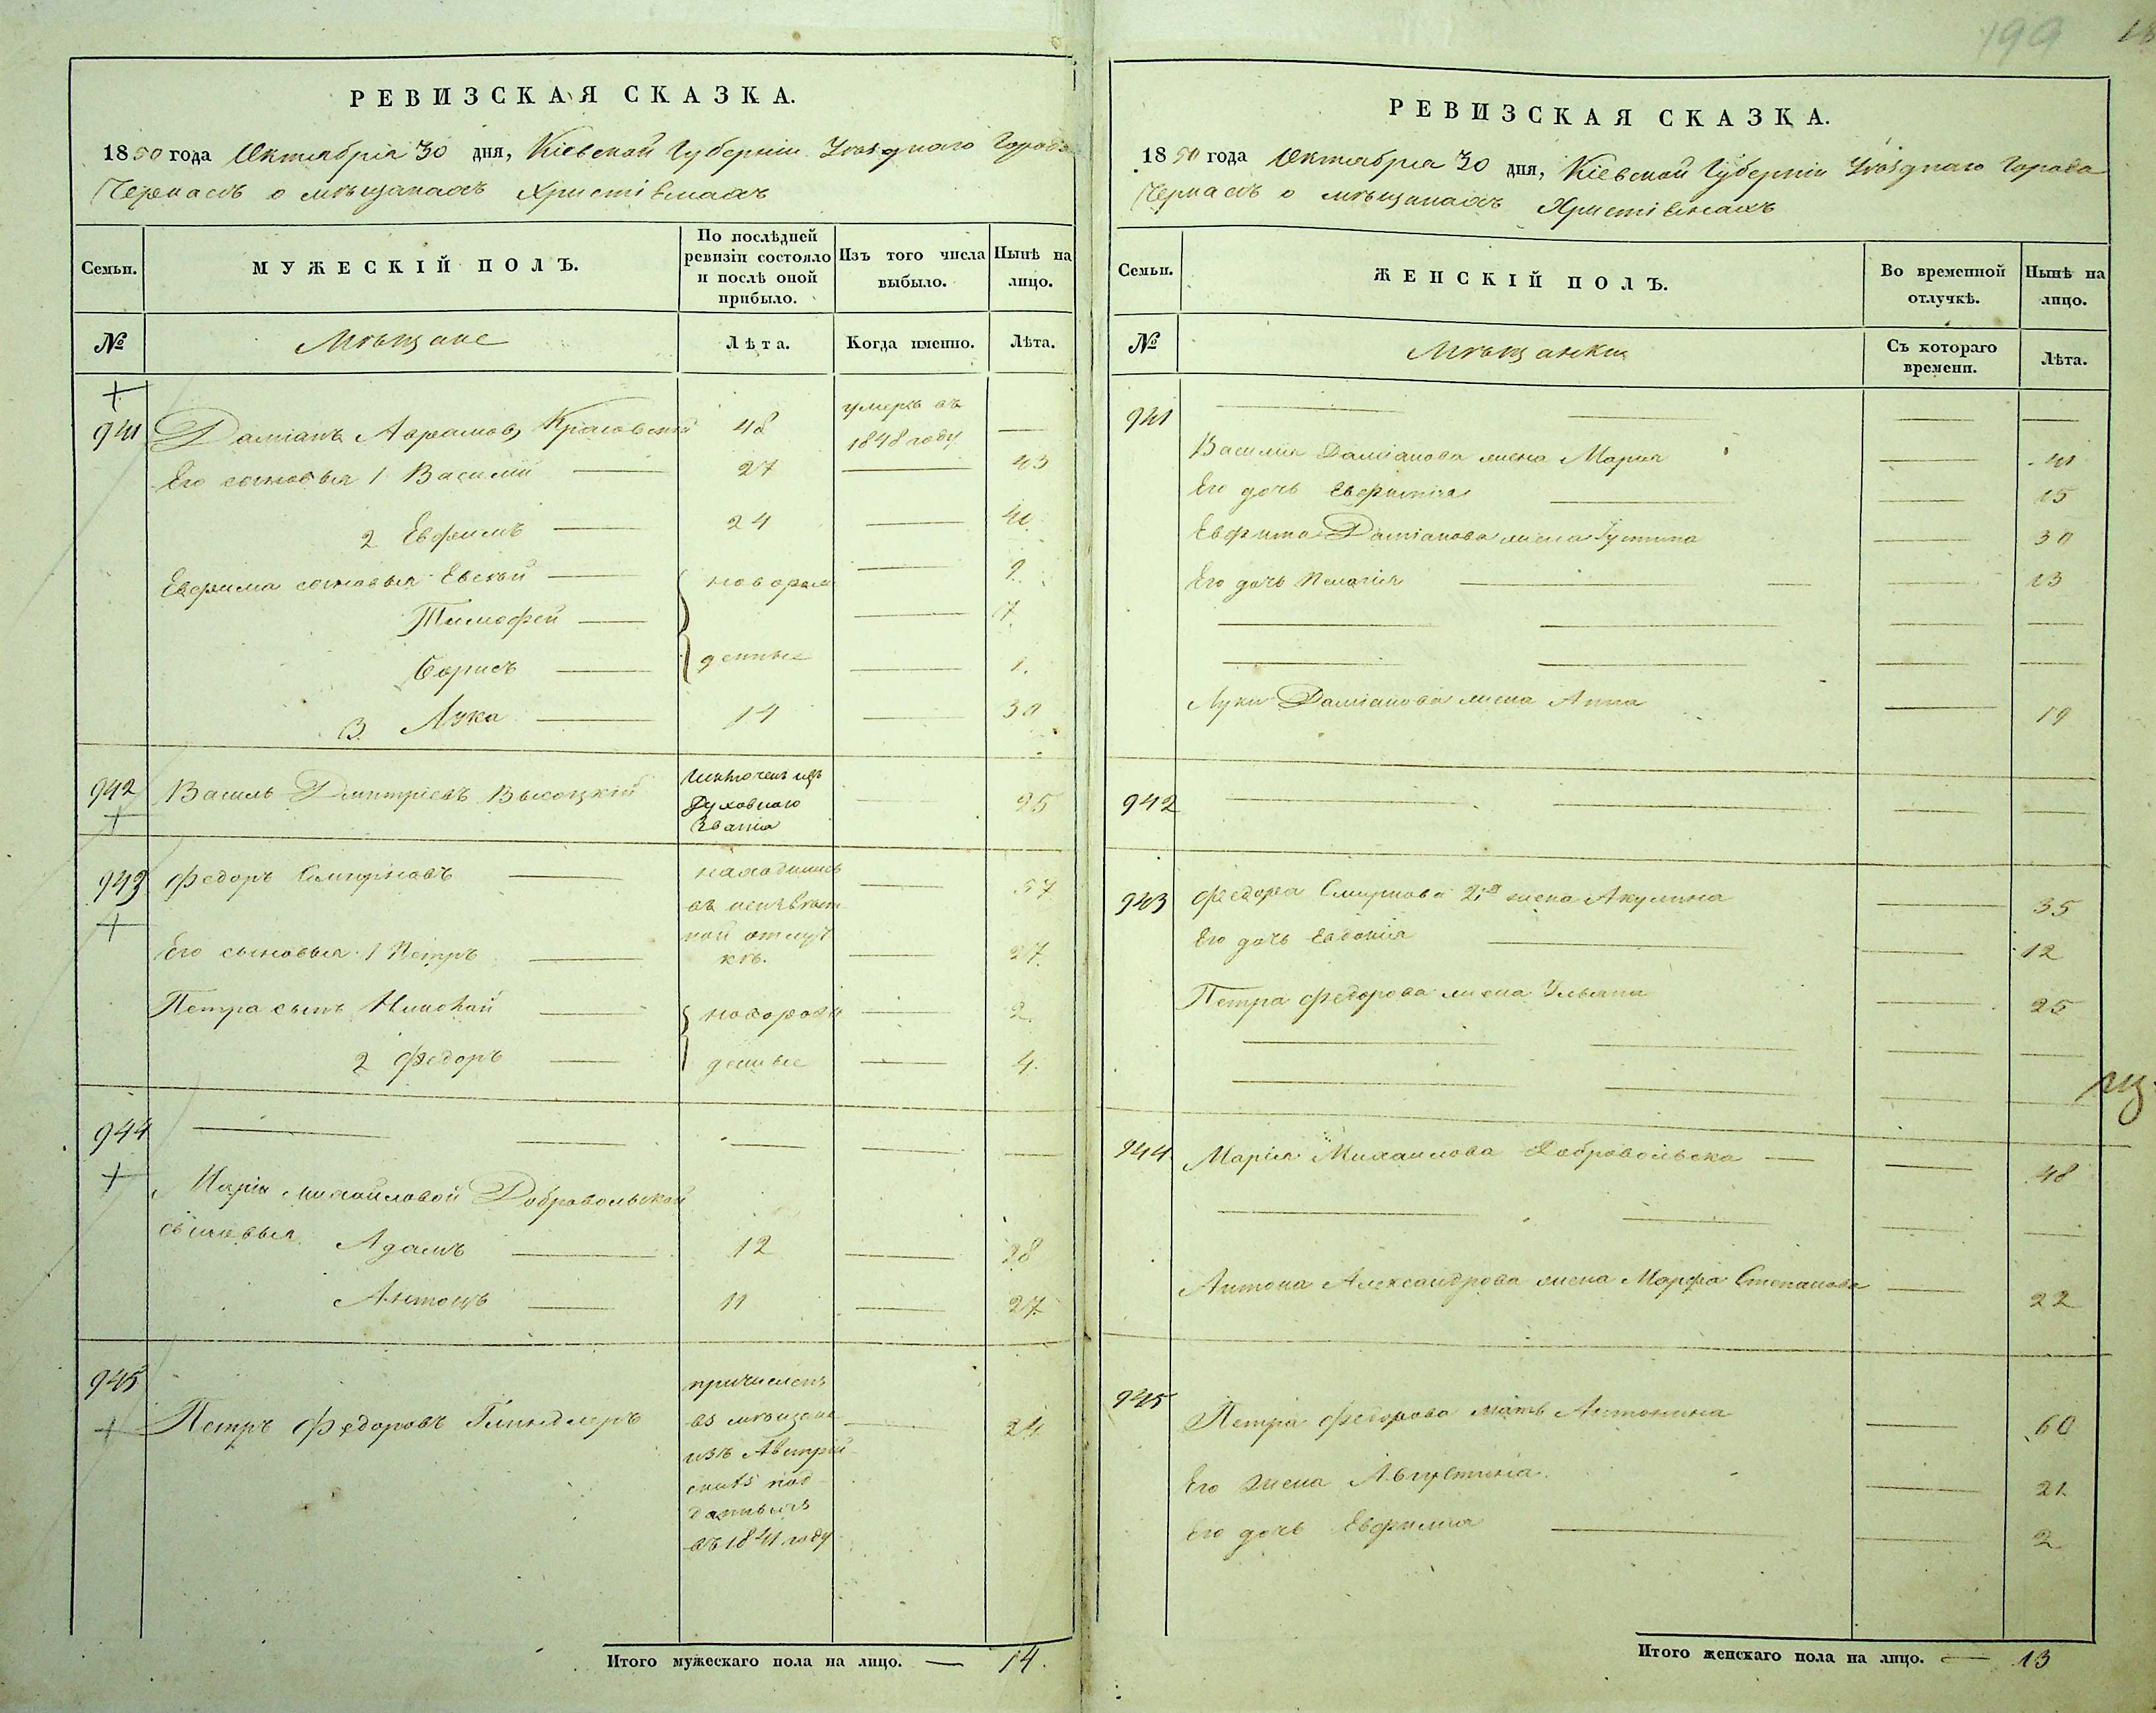 199
РЕВИЗСКАЯ СКАЗКА.
1850 года Октября 30 дня, Кіевской Губерніи Уѣзднаго Города
Черкасъ о мѣщанахъ Христіянахъ
Семьи.
МУЖЕСКІЙ ПОЛЪ.
По послѣдней ревизіи состояло и послѣ оной прибыло.
Изъ того числа выбыло.
Нынѣ на лицо.
№
Мѣщане
Лѣта.
Когда именно.
Лѣта.
941 Даміанъ Аврамовъ Красовскій 48 умеръ въ 1848 году —
Его сыновья 1 Василій — 27 — 43
2 Евфимъ — 24 — 40
Евфима сыновья Евсѣй — новорож — 9
Тимофей — — 7
Борисъ — денные — 1
3 Лука — 14 — 30
942 Василь Дмитріевъ Высоцкій Исключенъ изъ Духовнаго Званія — 25
943 Федоръ Смирновъ — находились — 57
въ неизвѣст
ной отлуч
кѣ.
Его сыновья 1 Петръ — — 27
Петра сынъ Николай — новорож — 2
2 Федоръ — денные — 4
944 — — — — —
Маріи Михайловой Добровольской
сыновья Адамъ — 12 — 28
Антонъ — 11 — 27
945 Петръ Федоровъ причисленъ
въ мѣщане — 24
изъ Австрій
скихъ под
данныхъ
въ 1841 году
Итого мужескаго пола на лицо. — 14.
РЕВИЗСКАЯ СКАЗКА.
1850 года Октября 30 дня, Кіевской Губерніи Уѣзднаго Города
Черкасъ о мѣщанахъ Христіянахъ
Семьи.
ЖЕНСКІЙ ПОЛЪ.
Во временной отлучкѣ.
Нынѣ на лицо.
№
Мѣщанки
Съ котораго времени.
Лѣта.
941 — — — —
Василія Даміанова жена Марія — 41
Его дочь Евфимія — — 15
Евфима Даміанова жена Іустина — 30
Его дочь Пелагія — — — 13
— — — —
— — — —
Луки Даміанова жена Анна — 19
942 — — — —
943 Федора Смирнова 2я жена Акулина — 35
Его дочь Евдокія — — 12
Петра Федорова жена Ульяна — 25
— — — —
— — — —
944 Марія Михаилова Добровольска — — 48
— — — —
Антона Александрова жена Марфа Степанова — 22
945 Петра Федорова мать Антонина — 60
Его жена Августина — 21
Его дочь Евфимія — — 2
Итого женскаго пола на лицо. — 13